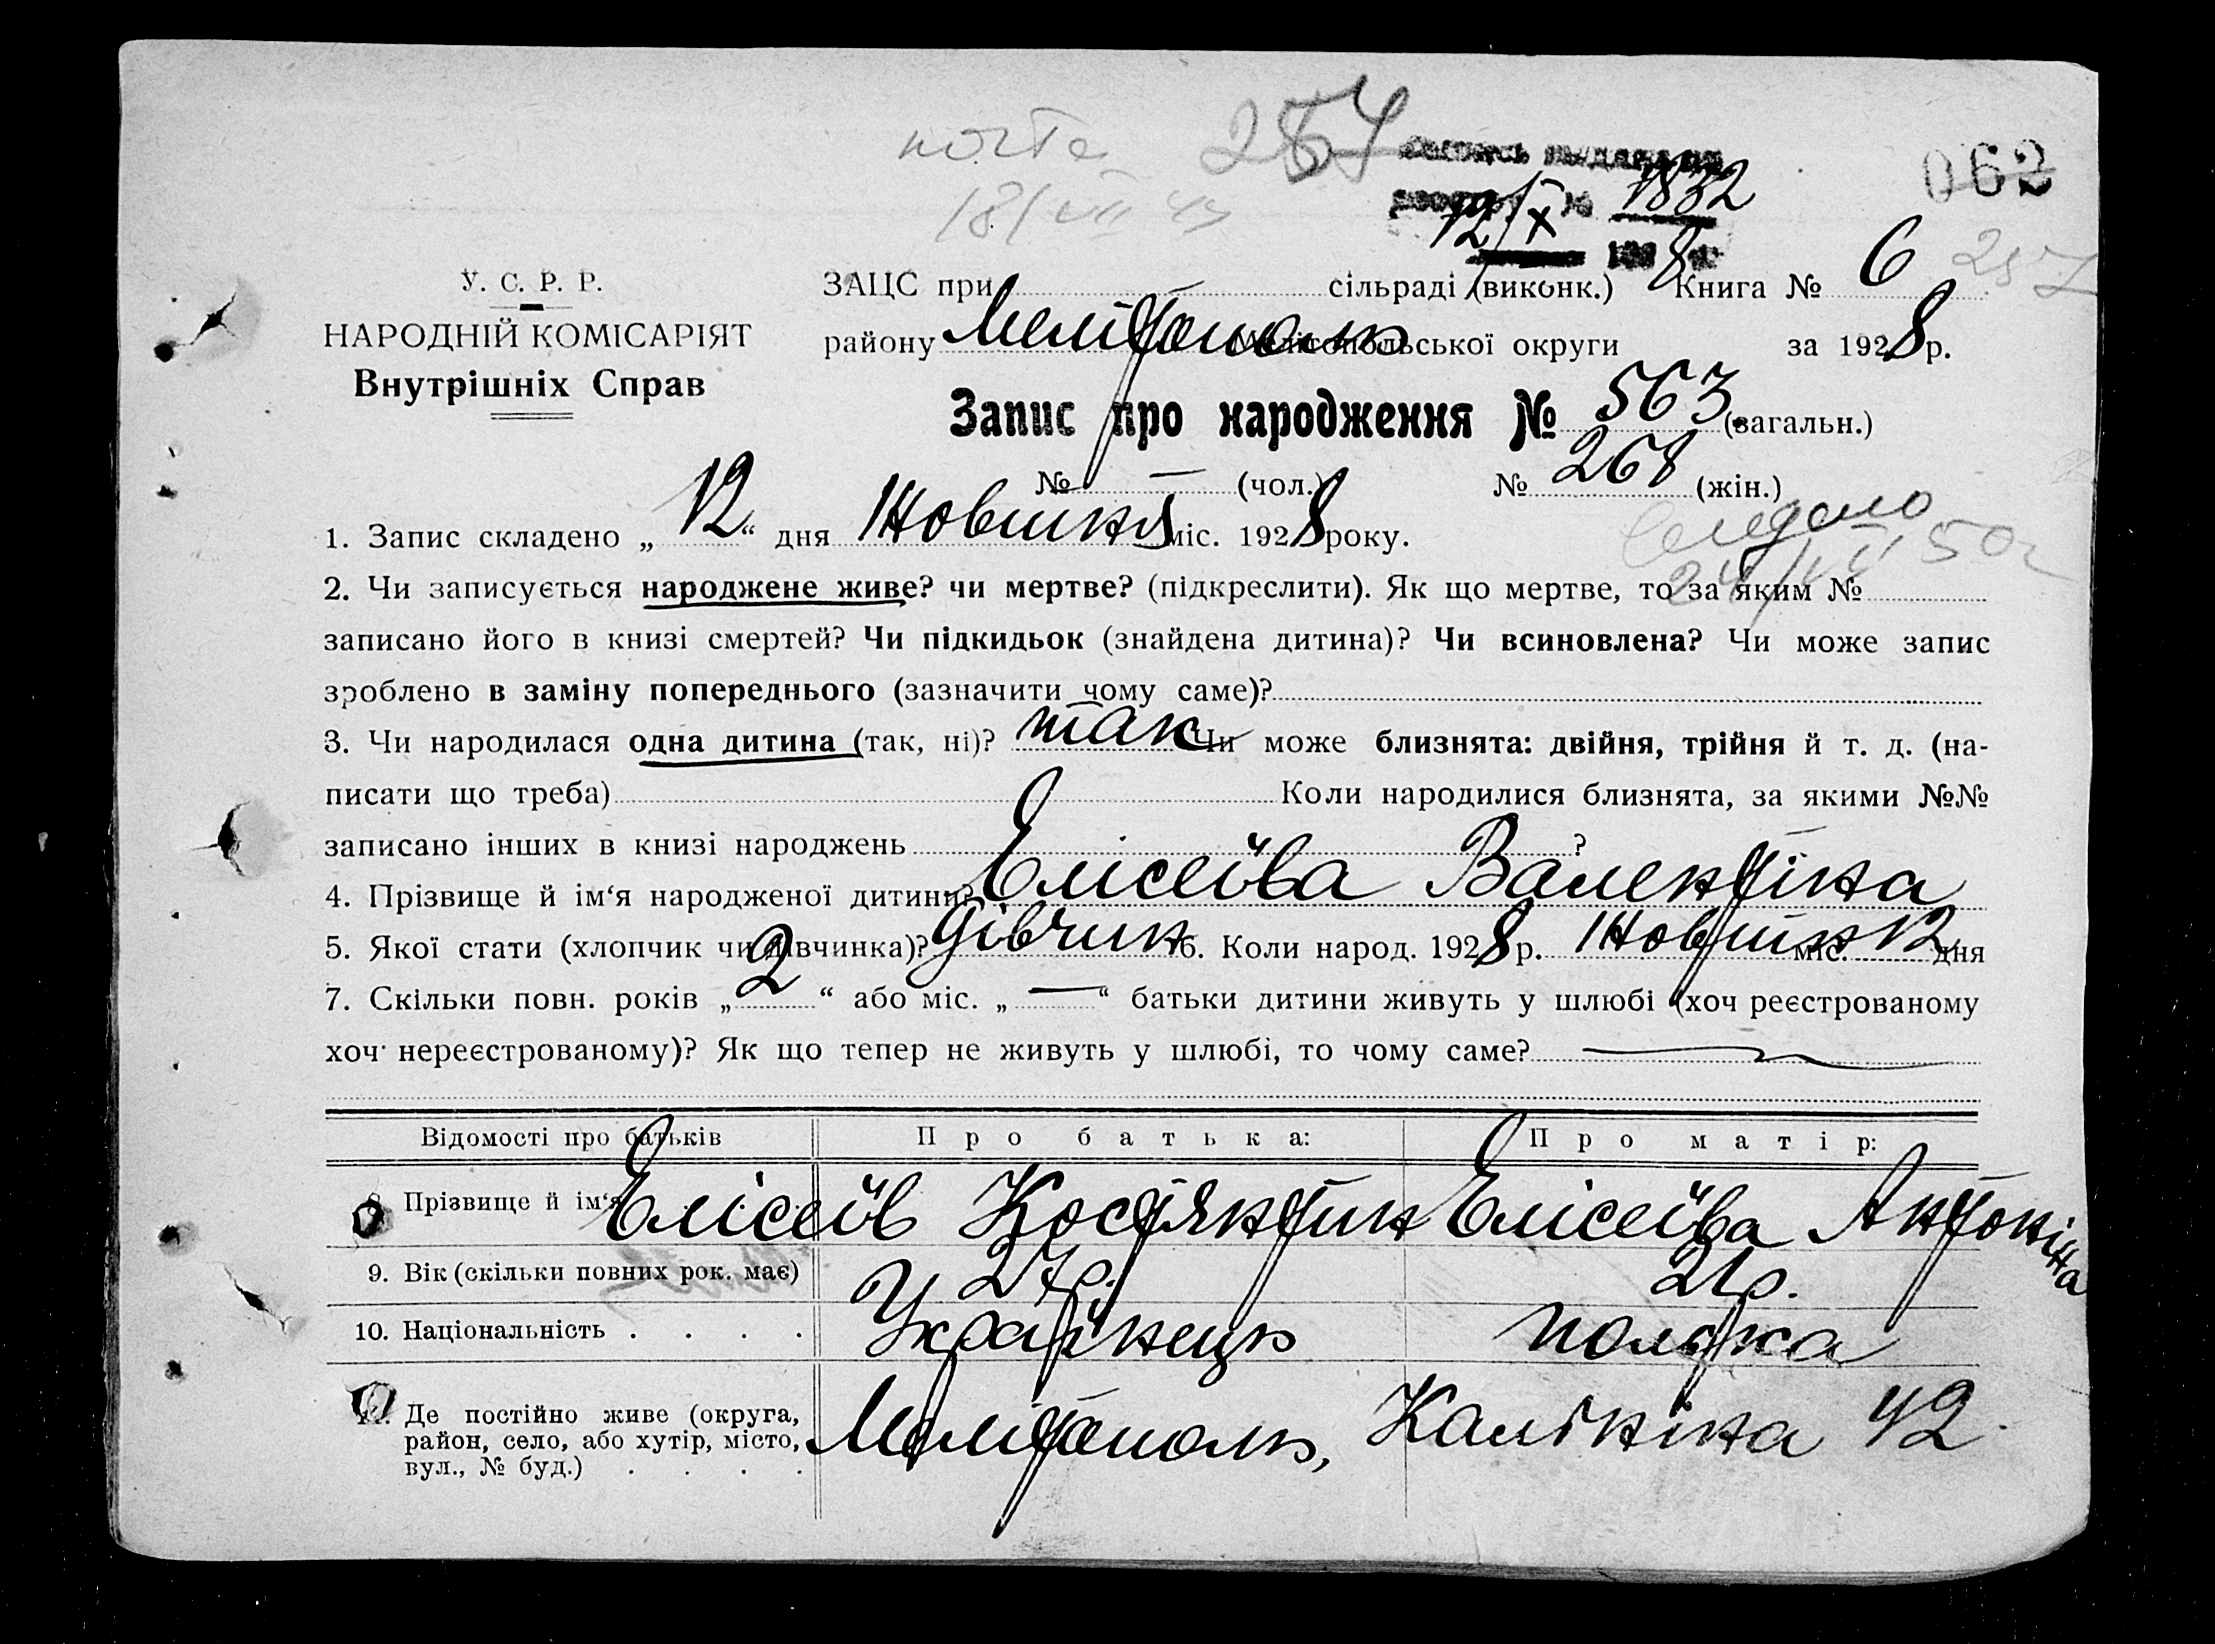 почта 254
18/VII 49
062
12/X № 1832
192 8
257
У. С. Р. Р.
НАРОДНІЙ КОМІСАРІЯТ
Внутрішніх Справ
ЗАЦС при сільраді (виконк.) Книга № 6
району Мелітополь Мелітопольської округи за 1928 р.
Запис про народження № 563 (загальн.)
№ — (чол.) № 268 (жін.)
1. Запис складено „ 12 “ дня Жовтня міс. 1928 року.
24/VII 50г
2. Чи записується народжене живе? чи мертве? (підкреслити). Як що мертве, то за яким №
записано його в книзі смертей? Чи підкидьок (знайдена дитина)? Чи всиновлена? Чи може запис
зроблено в заміну попереднього (зазначити чому саме)?
3. Чи народилася одна дитина (так, ні)? так Чи може близнята: двійня, трійня й т. д. (на-
писати що треба) Коли народилися близнята, за якими №№
записано інших в книзі народжень ?
4. Прізвище й ім‘я народженої дитини? Єлісеїва Валентіна
5. Якої стати (хлопчик чи дівчинка)? дівчин 6. Коли народ. 1928 р. Жовтня міс. 12 дня
7. Скільки повн. років „ 2 “ або міс. „ — “ батьки дитини живуть у шлюбі (хоч реєстрованому
хоч нереєстрованому)? Як що тепер не живуть у шлюбі, то чому саме? —
Відомості про батьків Про батька: Про матір:
8. Прізвище й ім‘я Єлісеїв Костянтин Єлісеїва Антоніна
9. Вік (скільки повних рок. має) 27р. 21р.
10. Національність . . . . Українець полячка
11. Де постійно живе (округа,
район, село, або хутір, місто, Мелітополь, Калініна 42
вул., № буд.) . . . .